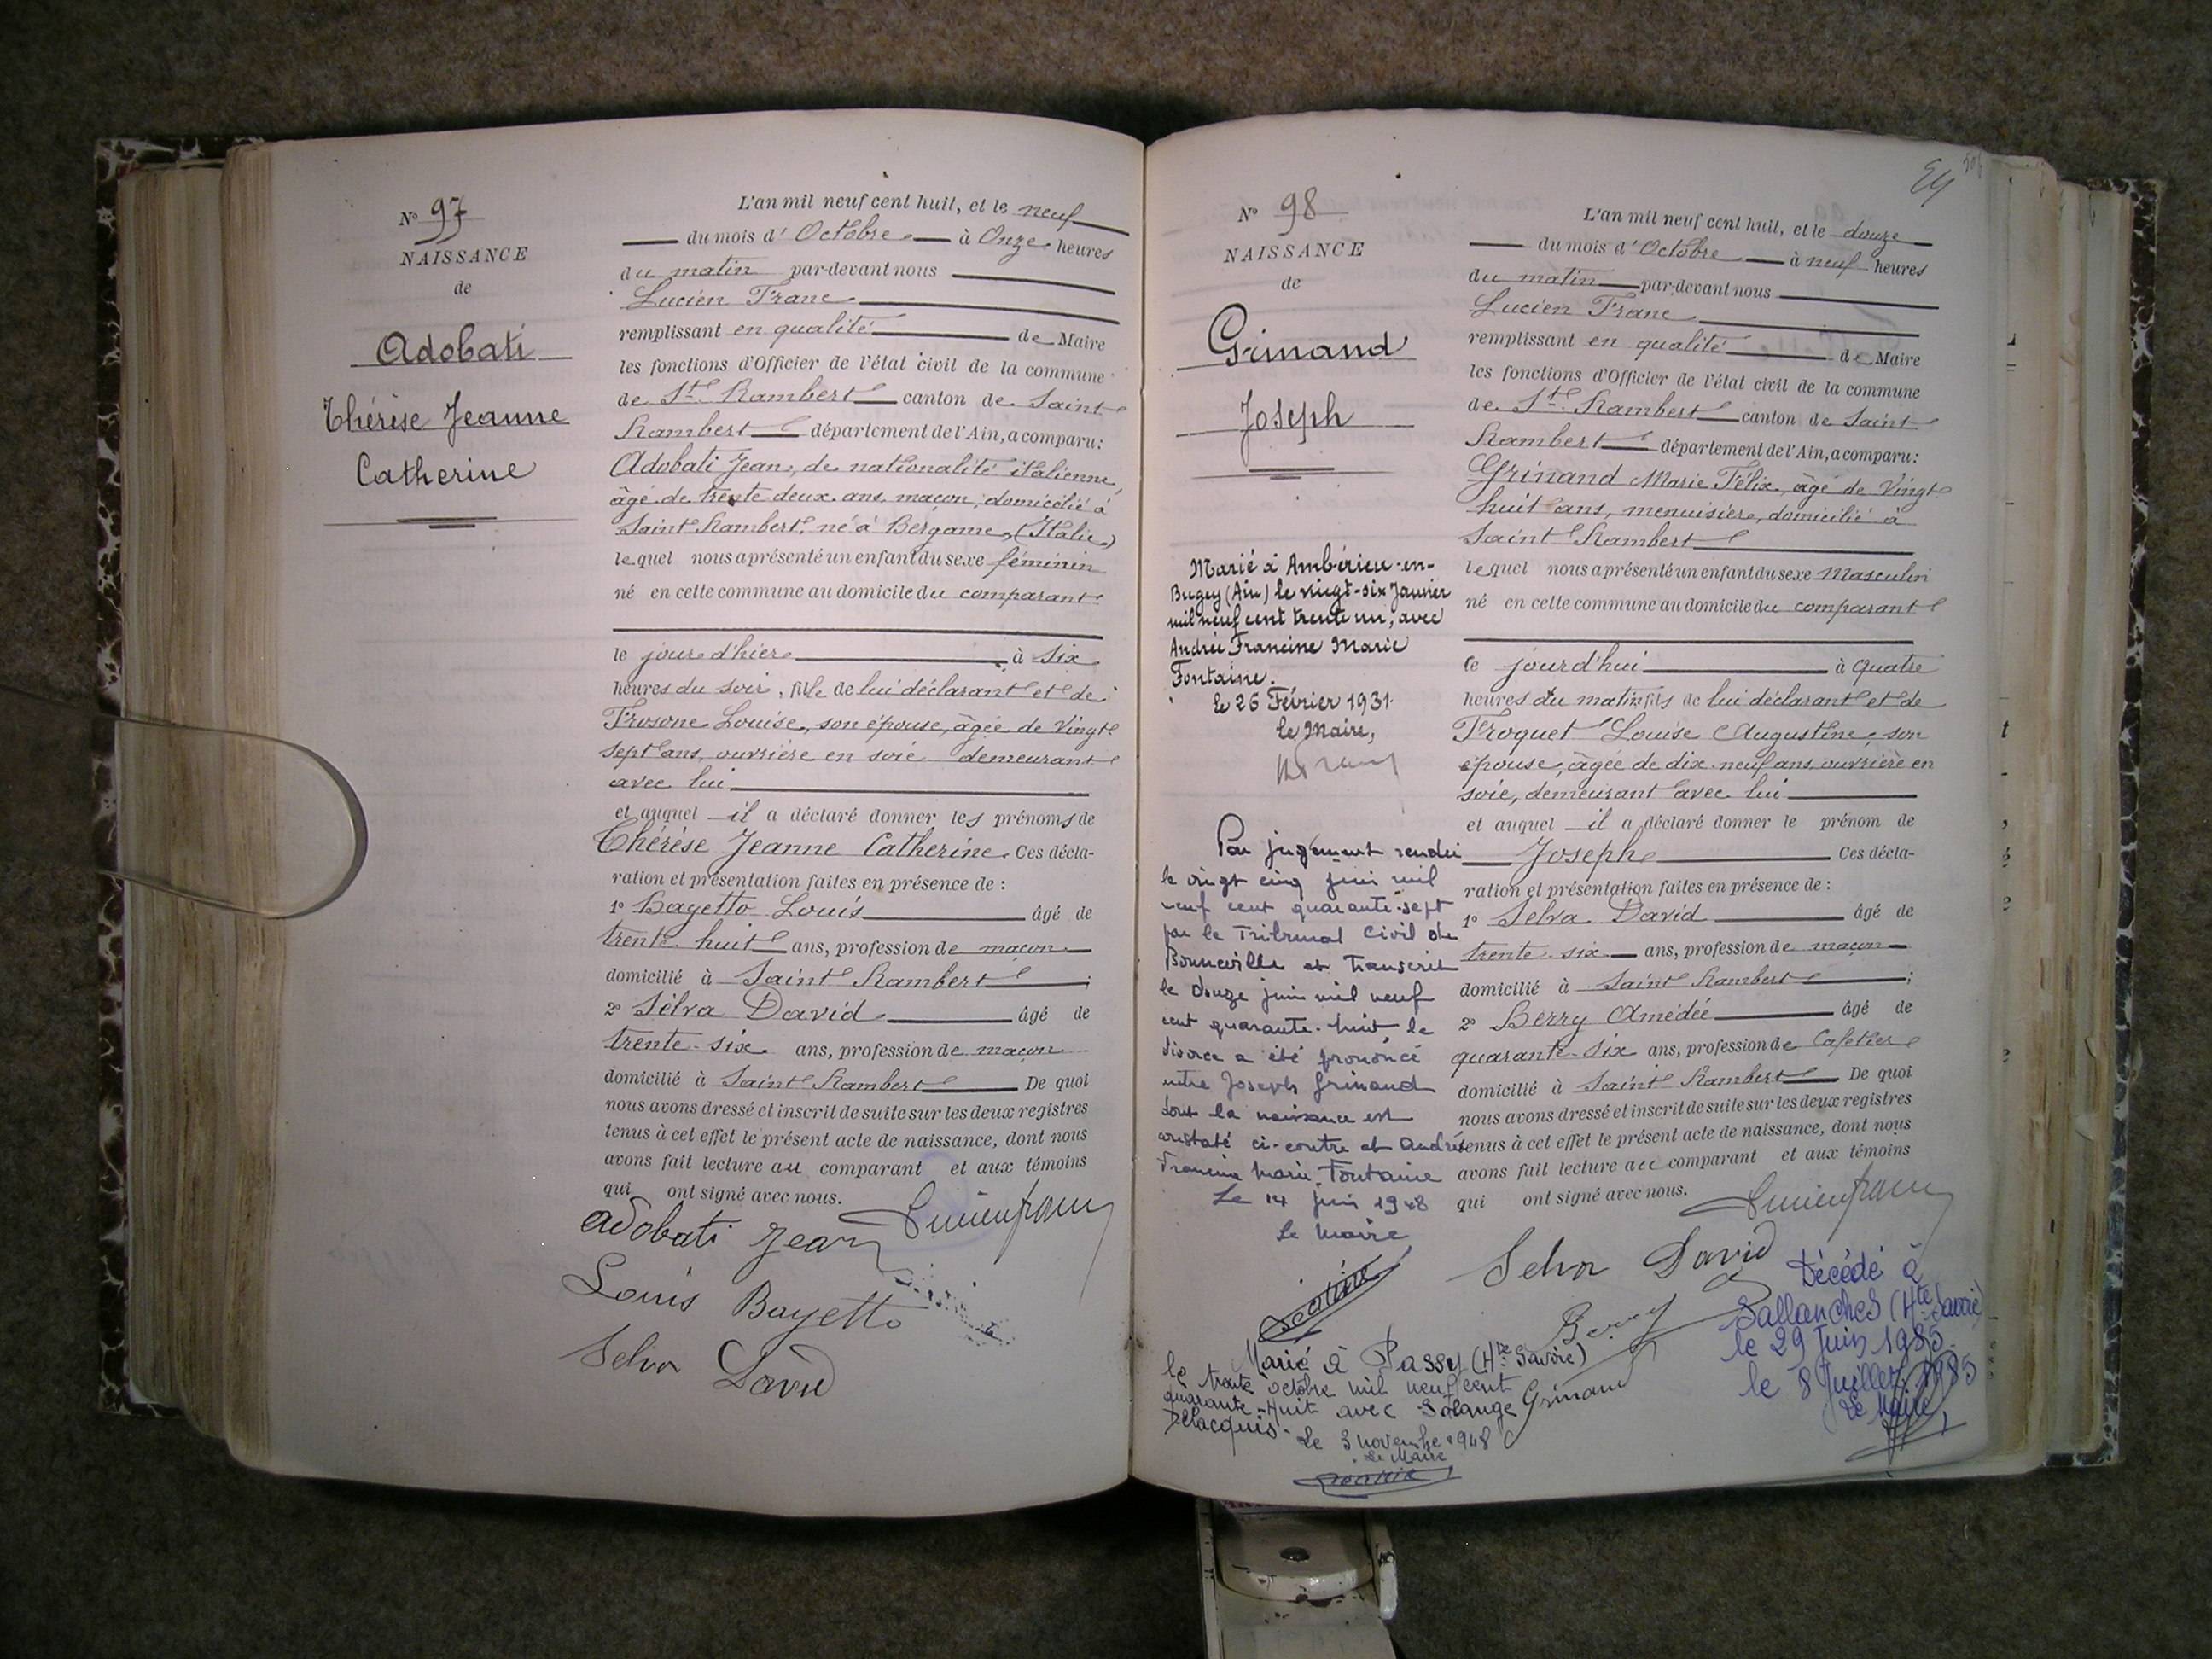 N° 97
NAISSANCE
de
Adobati
Thérèse Jeanne
Catherine
L'an mil neuf cent huit, et le neuf
du mois d'Octobre à Onze heures
du matin par-devant nous
Lucien Franc
remplissant en qualité de Maire
les fonctions d'Officier de l'état civil de la commune
de St. Rambert canton de Saint
Rambert département de l'Ain, a comparu:
Adobati Jean, de nationalité italienne,
âgé de trente deux ans, maçon, domicilié à
Saint Rambert, né à Bergame, (Italie)
lequel nous a présenté un enfant du sexe féminin
né en cette commune au domicile du comparant
le jour d'hier à six
heures du soir, fille de lui déclarant et de
Frosone Louise, son épouse, âgée de vingt
sept ans, ouvrière en soie demeurant
avec lui
et auquel il a déclaré donner les prénoms de
Thérèse Jeanne Catherine. Ces décla-
ration et présentation faites en présence de :
1° Bayetto Louis âgé de
trente huit ans, profession de maçon
domicilié à Saint Rambert ;
2° Selva David âgé de
trente-six ans, profession de maçon
domicilié à Saint Rambert De quoi
nous avons dressé et inscrit de suite sur les deux registres
tenus à cet effet le présent acte de naissance, dont nous
avons fait lecture au comparant et aux témoins
qui ont signé avec nous.
Lucien franc
adobati Jean
Louis Bayetto
Selva David
N° 98
NAISSANCE
de
Grinand
Joseph
Marié à Ambérieu-en-
Bugey (Ain) le vingt-six Janvier
mil neuf cent trente un, avec
Andrée Francine Marie
Fontaine.
le 26 Février 1931.
le Maire,
Par jugement rendu
le vingt cinq juin mil
neuf cent quarante-sept
par le Tribunal Civil de
Bonneville et transcrit
le douze juin mil neuf
cent quarante-huit le
divorce a été prononcé
entre Joseph Grinand
dont la naissance est
constaté ci-contre et Andrée
Francine Marie Fontaine
Le 14 juin 1948
Le Maire
Marié à Passy (Hte Savoie)
le trente octobre mil neuf cent
quarante-Huit avec Solange
Delacquis.
Le 3 novembre 1948
Le Maire
L'an mil neuf cent huit, et le douze
du mois d'Octobre à neuf heures
du matin par-devant nous
Lucien Franc
remplissant en qualité de Maire
les fonctions d'Officier de l'état civil de la commune
de St. Rambert canton de Saint
Rambert département de l'Ain, a comparu:
Grinand Marie Félix, âgé de vingt
huit ans, menuisier, domicilié à
Saint Rambert
lequel nous a présenté un enfant du sexe Masculin
né en cette commune au domicile du comparant
ce jourd'hui à quatre
heures du matin fils de lui déclarant et de
Froquet Louise Augustine, son
épouse, âgée de dix-neuf ans, ouvrière en
soie, demeurant avec lui
et auquel il a déclaré donner le prénom de
Joseph Ces décla-
ration et présentation faites en présence de :
1° Selva David âgé de
trente-six ans, profession de maçon
domicilié à Saint Rambert ;
2° Berry Amédée âgé de
quarante-six ans, profession de Cafetier
domicilié à Saint Rambert De quoi
nous avons dressé et inscrit de suite sur les deux registres
tenus à cet effet le présent acte de naissance, dont nous
avons fait lecture au comparant et aux témoins
qui ont signé avec nous.
Lucien franc
Selva David
Berry
Grinand
Décédé à
Sallanches (Hte Savoie)
le 29 Juin 1985.
le 8 Juillet 1985
Le Maire,